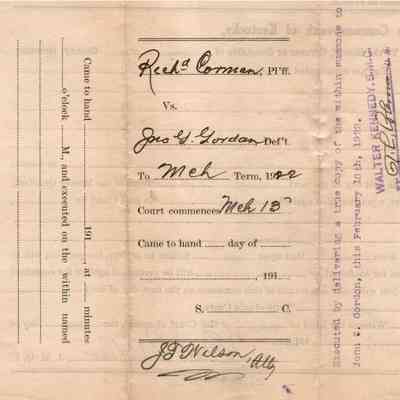 Came to hand ........ 191 ...., at ..... minutes
o'clock ........ M., and executed on the within named
Rich^d Corman, Pl'ff.
Vs.
Jno G. Gordan Def't.
To Mch Term, 1922
Court commences Mch 13"
Came to hand ...... day of ........
................, 191....
S. C.
J T Wilson, Atty
Executed by delivering a true copy of the within summons to
John G. Gordon, this February 18th, 1922.
WALTER KENNEDY, S.M.C.